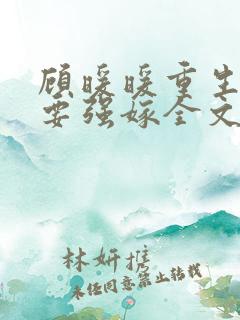 顾暖暖重生
要强嫁全文
林妍推
未经同意禁止转载